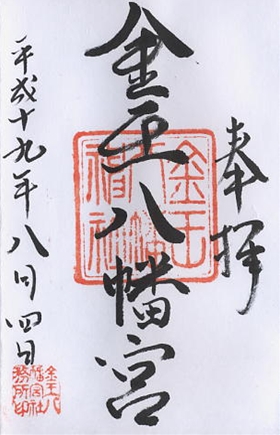 奉拝
金王八幡宮
平成十九年八月四日
金王八
幡宮社
務所印